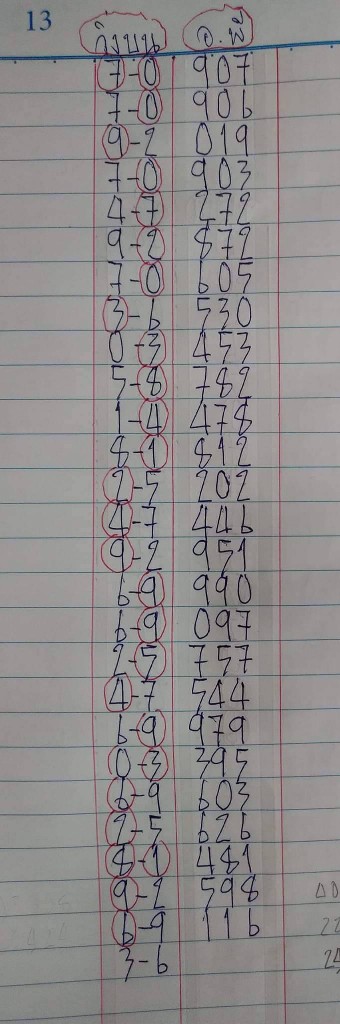 13
วิ่งบน จ.พี
7-0 907
7-0 906
9-2 019
7-0 903
4-7 272
9-2 872
7-0 605
3-6 530
0-3 453
5-8 782
1-4 478
8-1 812
2-5 202
4-7 446
9-2 951
6-9 990
6-9 097
2-5 757
4-7 544
6-9 979
0-3 395
6-9 603
2-5 626
8-1 481
9-2 598
6-9 116
3-6